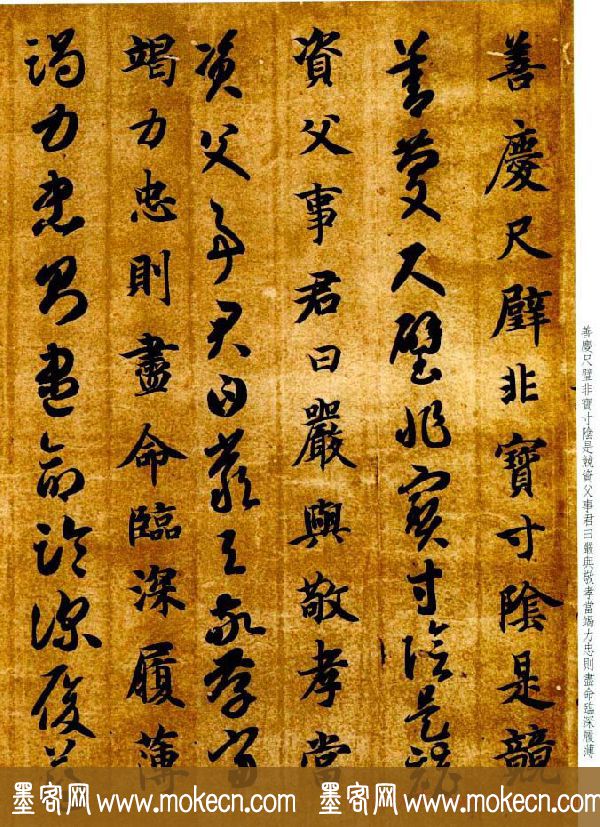 善慶尺璧非寶寸陰是競
善慶尺璧非寶寸陰是競
資父事君曰嚴與敬孝當
資父事君曰嚴與敬孝當
竭力忠則盡命臨深履薄
竭力忠則盡命臨深履薄
善慶尺璧非寶寸陰是競資父事君曰嚴與敬孝當竭力忠則盡命臨深履薄
墨客网 www.mokecn.com 墨客网 www.mokecn.com